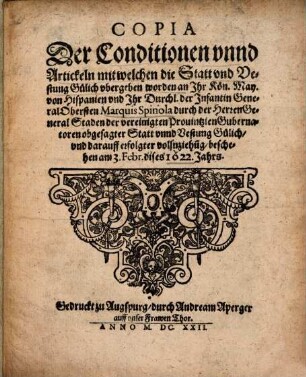 COPIA
Der Conditionen vnnd
Artickeln mit welchen die Statt vnd Ve-
stung Gülich vbergeben worden an Ihr Kön. May.
von Hispanien vnd Ihr Durchl. der Infantin Gene-
ral Obersten Marquis Spinola durch der Herren Ge-
neral Staden der vereinigten Prouintzien Guberna-
toren obgesagter Statt vnnd Vestung Gülich/
vnd darauff erfolgter vollnziehũg/ besche-
hen am 3. Febr. dises 1622. Jahrs.
Gedruckt zu Augspurg/ durch Andream Aperger
auff vnser Frawen Thor.
ANNO M. DC. XXII.